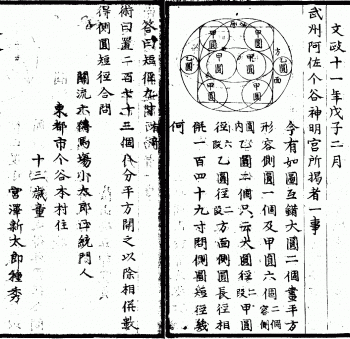 文政十一年戊子二月
武州阿佐个谷神明宮所揭者一事
甲圓
甲圓
甲圓
甲圓
甲圓
甲圓
乙圓
乙圓
方面
今有如圖互錯大圓二個畫平方
形容側圓一個及甲圓六個二個容側圓
內乙圓二個只云大圓徑甲圓
徑六段乙圓徑二段方面側圓長徑相
併一百四十九寸問側圓短徑幾
何
答曰短徑九寸有
術曰置二百七十三個分平方開之以除相併數
得側圓短徑合問
關流六傳馬場小太郎正統門人
東都市个谷本村住
十三歲童
宮澤新太郎種秀